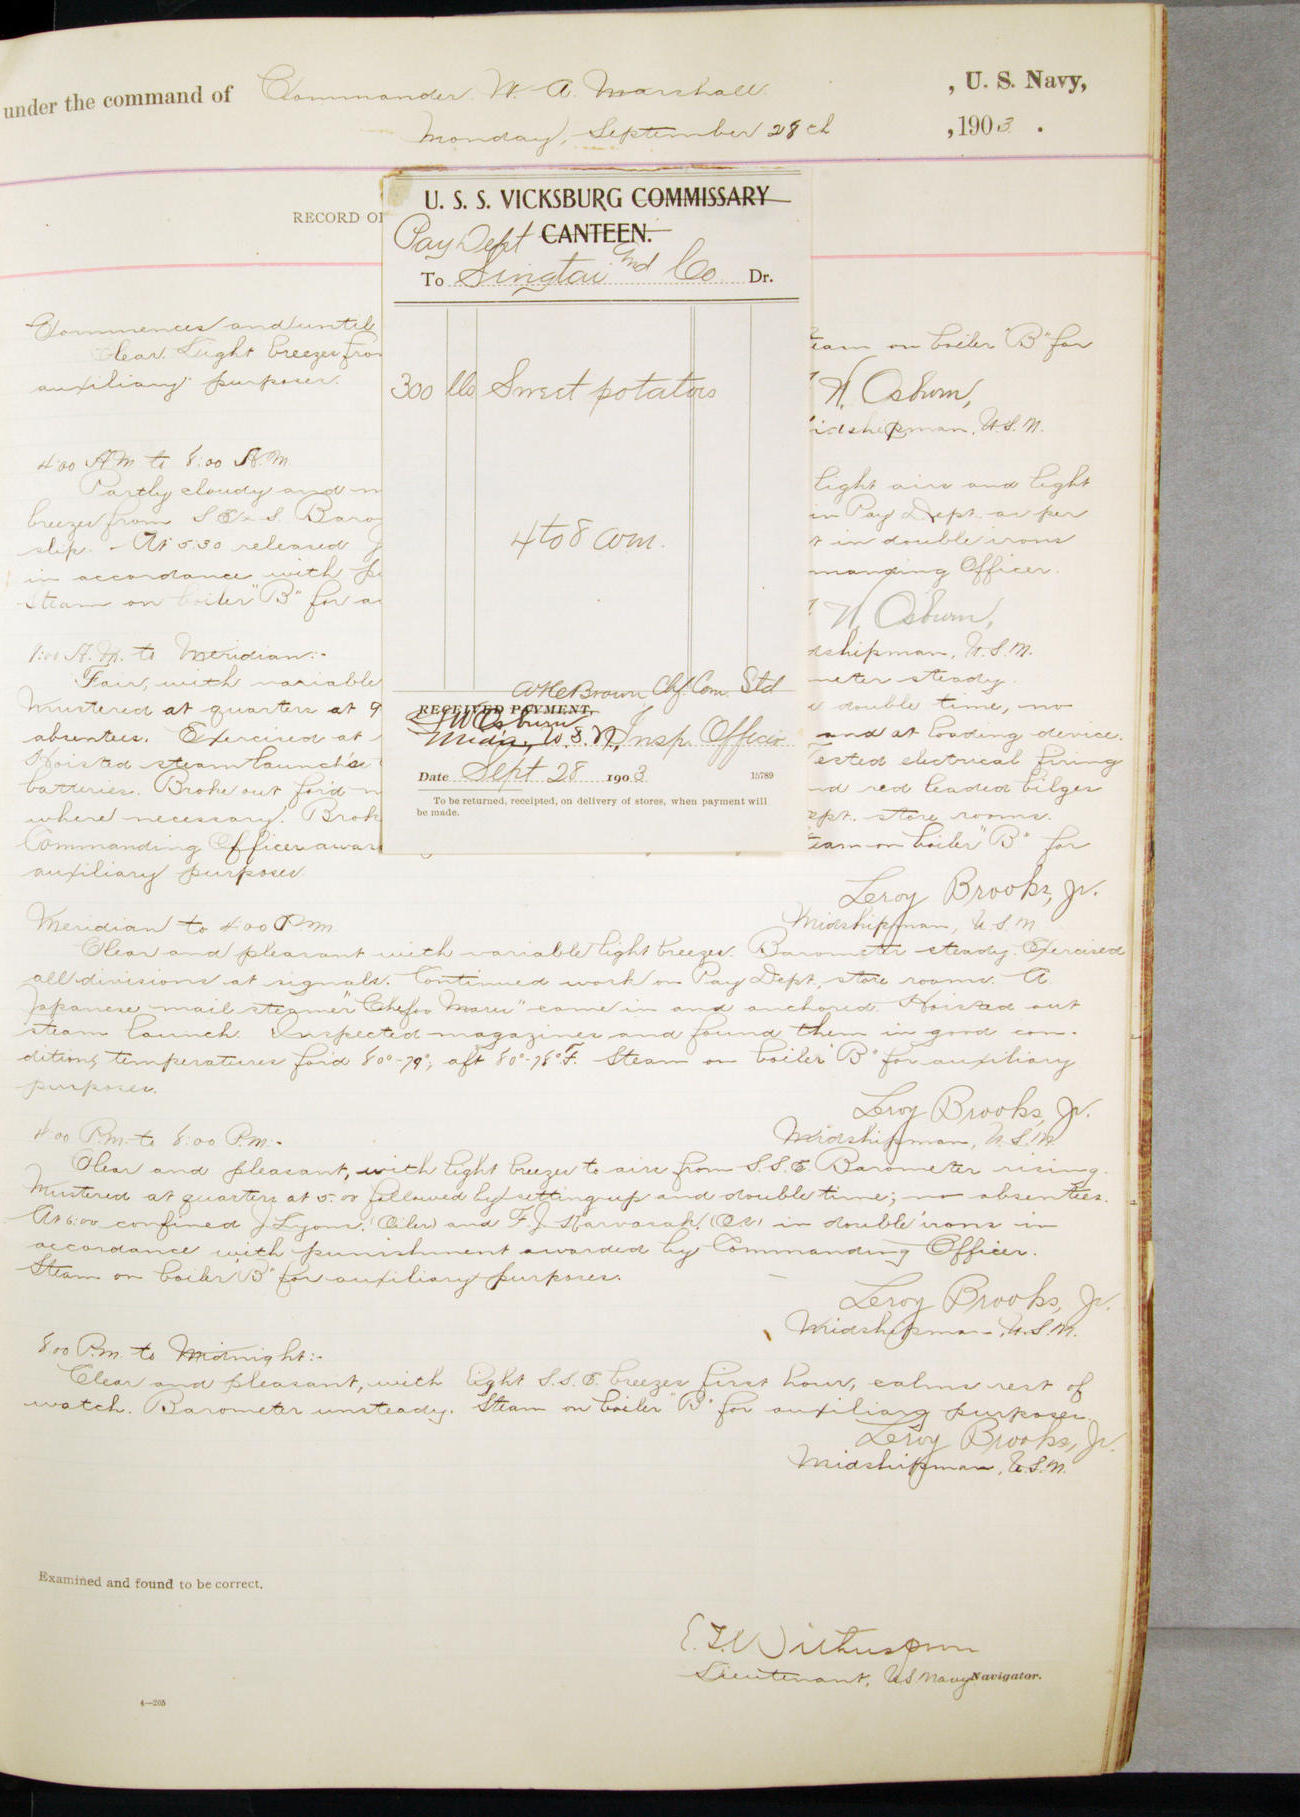 under the command of Commander W. A. Marshall, U. S. Navy,
Monday, September 28th, 1903.
RECORD OF
U. S. S. VICKSBURG COMMISSARY
Pay Dept CANTEEN.
To Singtai and Co Dr.
300 lbs Sweet potatoes
4 to 8 am.
Brown Chf. Com. Std
RECEIVED PAYMENT,
Osburn
Midn, U.S.N. Insp. Officer
Date Sept 28 1903
15789
To be returned, receipted, on delivery of stores, when payment will
be made.
Commences and until
Clear. Light breezes from
steam on boiler "B" for
auxiliary purposes.
W. Osburn,
Midshipman, U.S.N.
4:00 A.M. to 8:00 A.M.
Partly cloudy and light airs and light
breezes from S.E. - S. in Pay Dept. as per
slip. - At 5:30 released in double irons
in accordance with Commanding Officer.
Steam on boiler "B" for
W. Osburn,
Midshipman, U.S.N.
8:00 A.M. to Meridian:-
Fair, with variable Barometer steady.
Mustered at quarters at 9 double time, no
absentees. Exercised at and at loading device.
Hoisted steam launch's Tested electrical firing
batteries. Broke out for'd and red leaded bilges
where necessary. Broke Dept. store rooms.
Commanding Officer awarded Steam on boiler "B" for
auxiliary purposes
Leroy Brooks, Jr.
Midshipman, U.S.N
Meridian to 4:00 P.M.
Clear and pleasant with variable light breezes. Barometer steady. Exercised
all divisions at signals. Continued work on Pay Dept., store rooms. A
Japanese mail steamer "Chefoo Maru" came in and anchored. Hoisted out
steam launch. Inspected magazines and found them in good con-
dition, temperatures for'd 80°-79°; aft 80°-78° F. Steam on boiler "B" for auxiliary
purposes.
Leroy Brooks, Jr.
Midshipman, U.S.N
4:00 P.M. to 8:00 P.M:-
Clear and pleasant, with light breezes to airs from S.S.E. Barometer rising.
Mustered at quarters at 5:00 followed by setting up and double time; no absentees.
At 6:00 confined J. Lyons, (Oiler) and F. J. in double irons in
accordance with punishment awarded by Commanding Officer.
Steam on boiler "B" for auxiliary purposes.
Leroy Brooks, Jr.
Midshipman, U.S.N.
8:00 P.M. to Midnight:-
Clear and pleasant, with light S.S.E. breezes first hour, calms rest of
watch. Barometer unsteady. Steam on boiler "B" for auxiliary purposes.
Leroy Brooks, Jr.
Midshipman, U.S.N.
Examined and found to be correct.
Lieutenant, U.S. Navy Navigator.
4—205